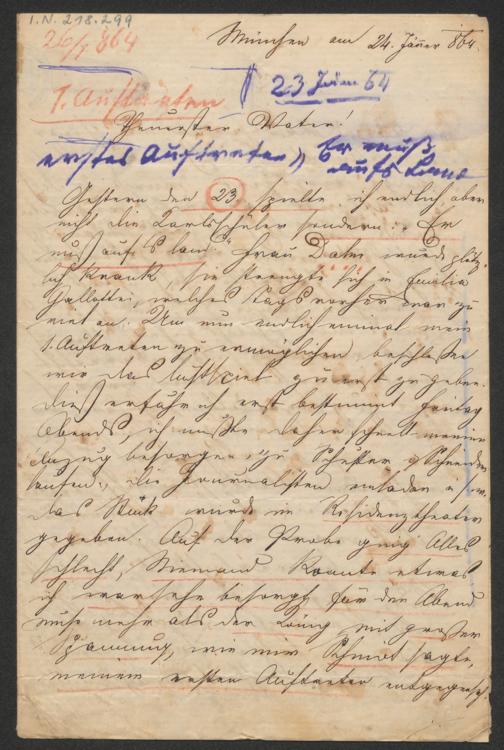 I.N. 218.299
26/7 864
München am 24. Jänner 864.
23 Jän 64
1. Auftreten
Theuerster Vater!
erstes Auftreten „Er muß
aufs Land
Gestern den 23 spielte ich endlich, aber
nicht die Karlsschüler sondern: „Er
muß auf's Land." Frau Dahn wurde plötz-
lich krank, sie strengte sich in Emilia
Gallotti, welches tags vorher war zu
viel an. Um nun endlich einmal mein
1. Auftreten zu ermöglichen, beschloßen
wir das Lustspiel zuerst zu geben.
Dieß erfuhr ich erst bestimmt Freitag
Abends, ich mußte daher schnell meinen
Anzug besorgen, zu Schuster & Schneider
laufen, die Journalisten einladen
das Stück wurde im Residenztheater
gegeben. Auf der Probe ging Alles
schlecht, Niemand konnte etwas
ich war sehr besorgt für den Abend
mehr als der König mit großer
Spannung, wie mir Schmidt sagte,
meinem ersten Auftreten entgegensah.